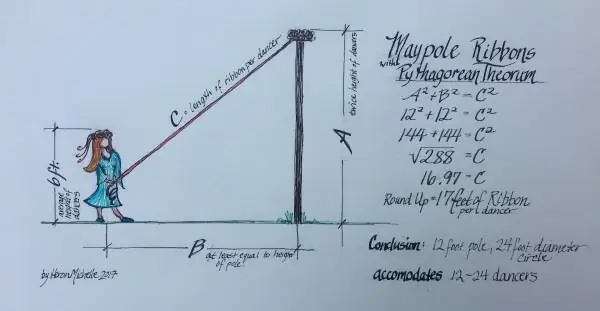 Maypole Ribbons
with
Pythagorean Theorum
A² + B² = C²
12² + 12² = C²
144 + 144 = C²
√288 = C
16.97 = C
Round Up = 17 feet of Ribbon
per 1 dancer
Conclusion: 12 foot pole, 24 foot diameter
circle
accomodates 12-24 dancers
C = length of ribbon per dancer
A
twice height of dancers
6 ft.
average height of dancers
B
at least equal to height
of pole!
by Heron Michelle 2017